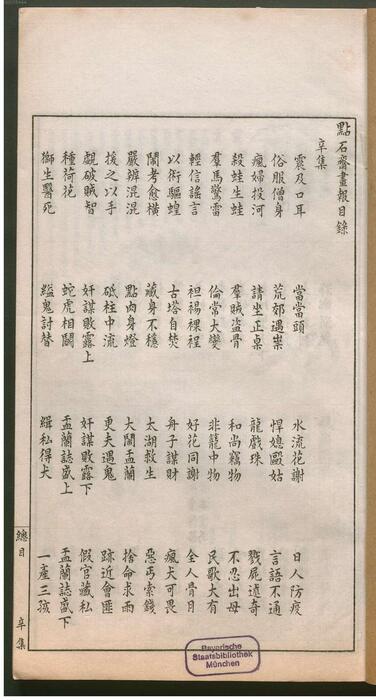 點石齋畫報目錄
辛集
震及口耳 當當頭 水流花謝 日人防疫
俗服僧身 荒郊遇祟 悍媳毆姑 言語不通
瘋婦投河 請坐正桌 龍戲珠 戮屍述奇
殺蛙生蛙 羣賊盜骨 和尚竊物 不忍出母
羣馬驚雷 倫常大變 非籠中物 民歌大有
輕信謠言 袒裼裸裎 好花同謝 全人骨月
以術驅蝗 古塔自焚 舟子謀財 瘋犬可畏
鬧考愈橫 藏身不穩 太湖救生 惡丐索錢
嚴辦混混 點肉身燈 大鬧盂蘭 捨命求雨
援之以手 砥柱中流 更夫遇鬼 跡近會匪
覷破賊智 奸謀敗露上 奸謀敗露下 假官藏私
種荷花 蛇虎相鬬 盂蘭誌盛上 盂蘭誌盛下
獅生醫死 縊鬼討替 緝私得犬 一產三孩
總目 辛集
Bayerische
Staatsbibliothek
München